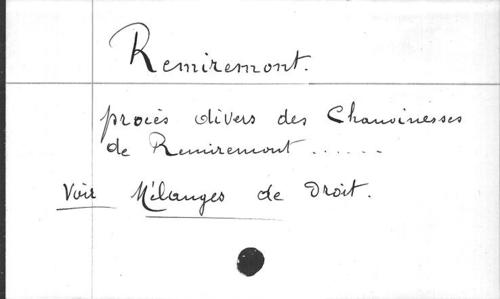 Remiremont.
procès divers des Chanoinesses
de Remiremont ......
Voir Mélanges de Droit.